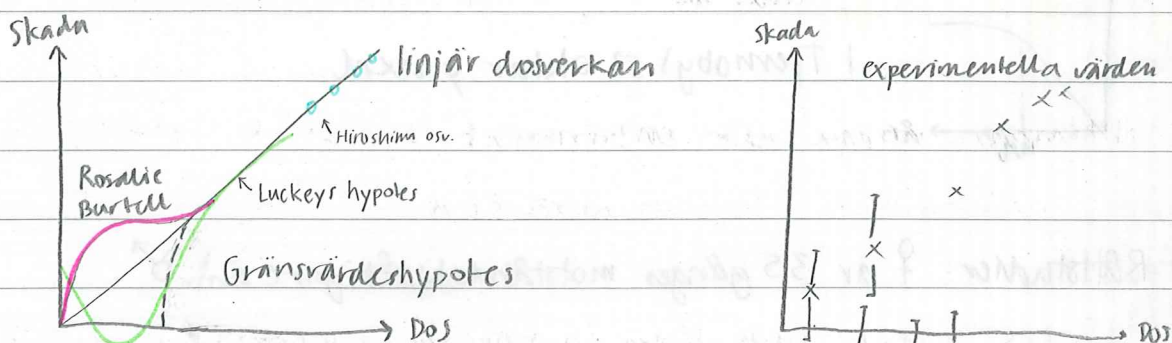 Skada
linjär dosverkan
Hiroshima osv.
Rosalie
Burtell
Luckeys hypotes
Gränsvärdeshypotes
Dos
Skada
experimentella värden
Dos